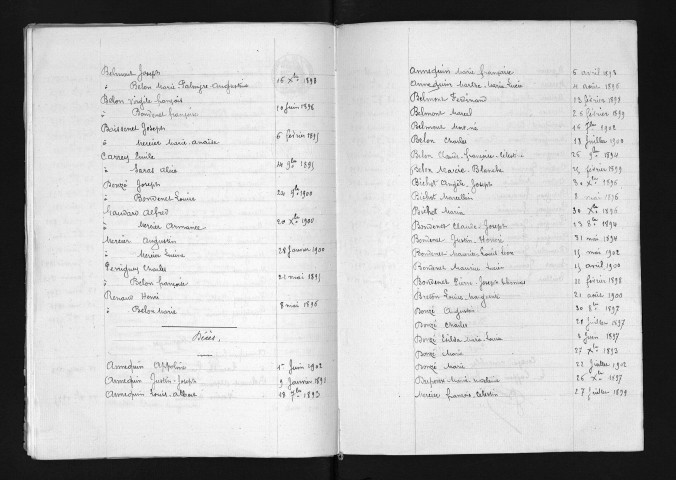 Belmont Joseph
à Belon Marie Palmyre Augustine 16 Xbre 1898
Belon Virgile-françois
à Bondenet françoise 10 juin 1896
Boissenet Joseph
à Mercier Marie-anaïse 6 février 1895
Carrey Emile
à 14 9bre 1895
Bouzé Joseph
à Bondenet Louise 24 9bre 1900
Alfred
à Mercier Armance 20 Xbre 1900
Mercier Augustin
à Mercier 28 Janvier 1900
Charles
à Belon françoise 21 mai 1895
Renaud Henri
à Belon Marie 8 mai 1896
Décès.
Annequin Appoline 1er Juin 1902
Annequin Justin-Joseph 9 Janvier 1895
Annequin Louis-Albert 18 7bre 1893
Annequin Marie françoise 6 avril 1893
Annequin Marthe-Marie-Lucie 4 août 1896
Belmont Ferdinand 12 février 1899
Belmont Marcel 26 février 1899
Belmont 16 7bre 1902
Belon Charles 18 Juillet 1900
Belon Claude-François-Célestin 26 9bre 1894
Belon Marie-Blanche 25 février 1899
Bichet Angèle Joseph 30 Xbre 1896
Bichet Marcellin 8 mai 1896
Bichet Maria 30 Xbre 1896
Bondenet Claude-Joseph 23 8bre 1894
Bondenet Justin-Honoré 31 mai 1894
Bondenet Maurice-Louis-Léon 15 mai 1902
Bondenet Maurice Lucien 15 avril 1900
Bondenet Pierre-Joseph-Thomas 11 février 1898
Breton Louise-Margue 21 août 1900
Bouzé Augustin 30 8bre 1897
Bouzé Charles 28 Juillet 1897
Bouzé Marie-Lucie 2 Juin 1897
Bouzé Marie 27 Xbre 1893
Bouzé Marie 22 Juillet 1902
Marie 26 Xbre 1897
Mercier françois-Célestin 27 Juillet 1899